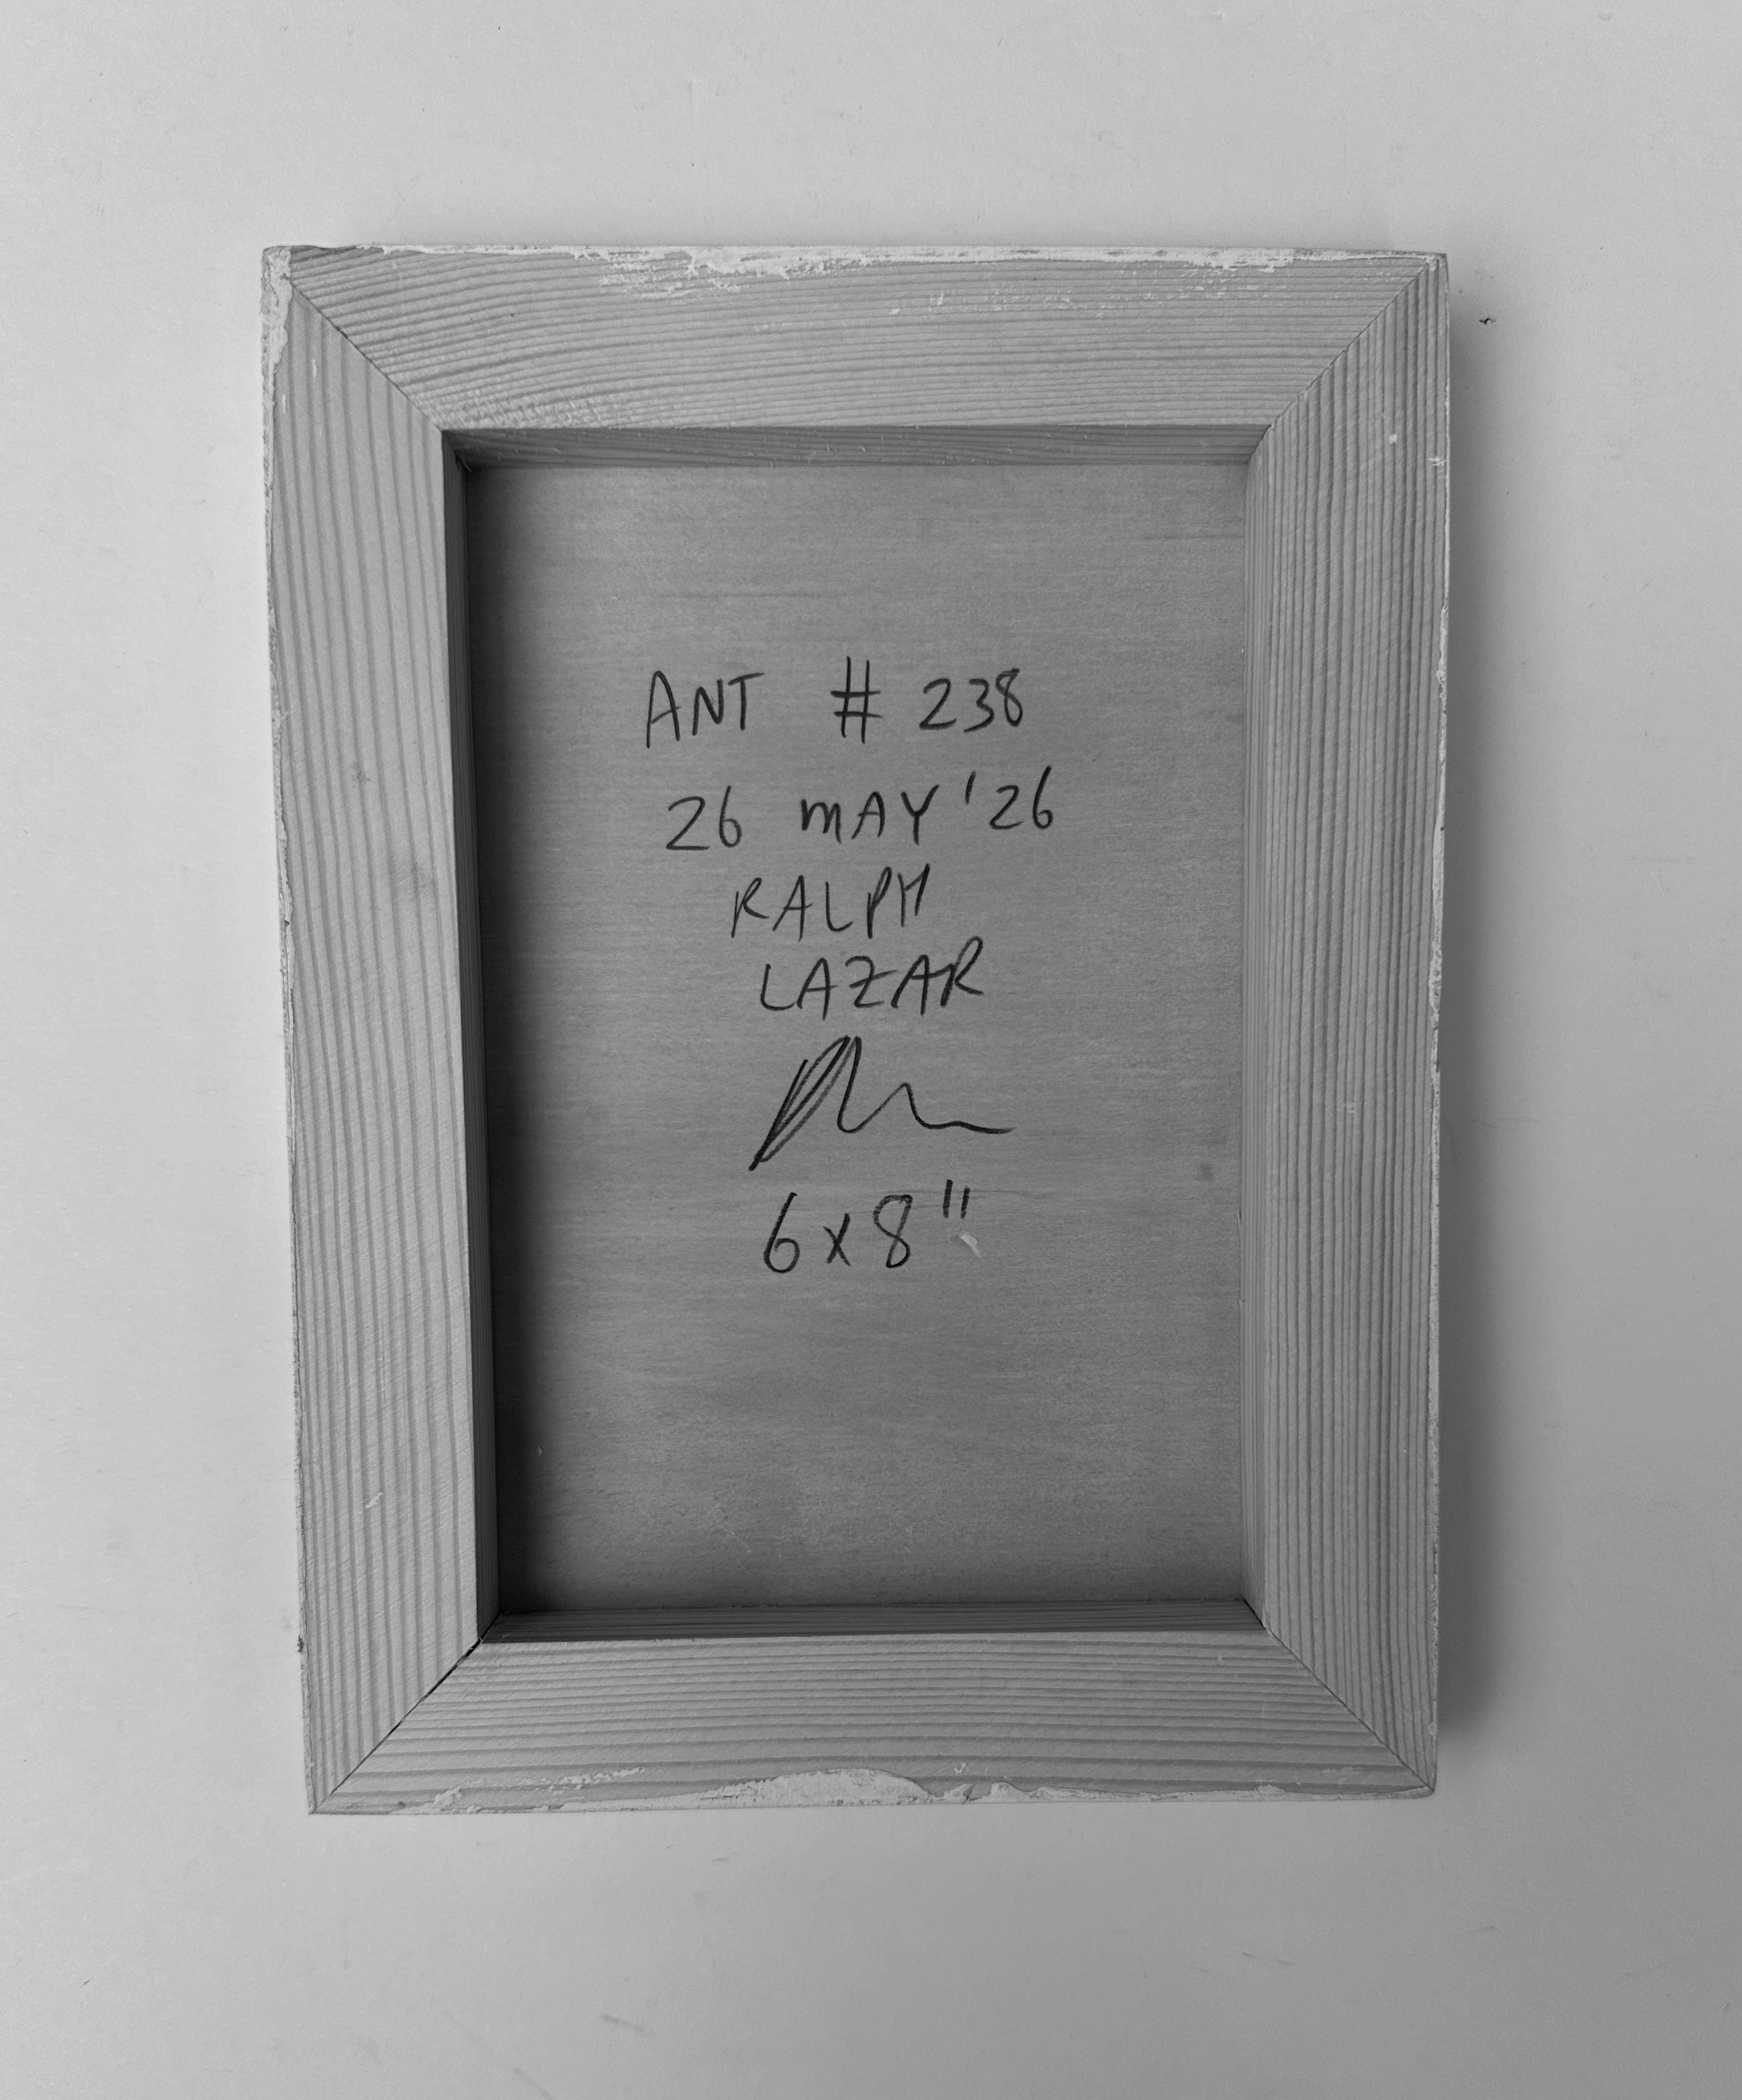 ANT # 238
26 MAY '26
RALPH
LAZAR
6x8"